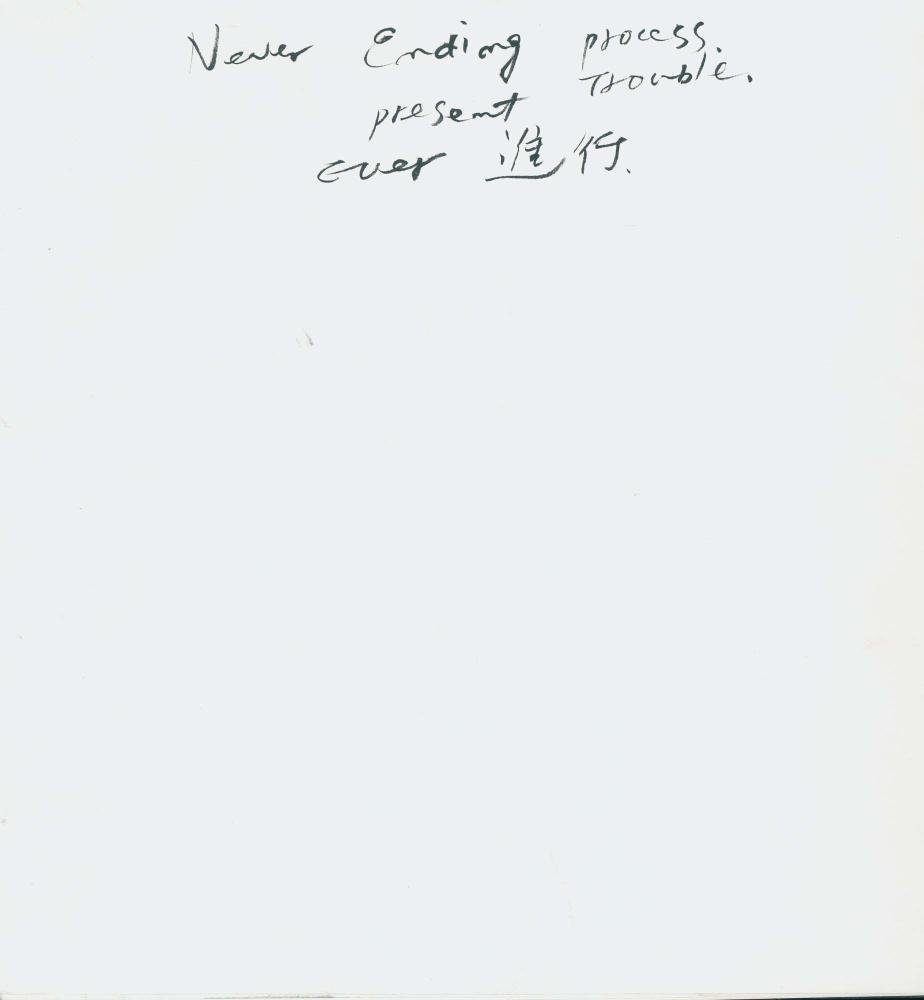 Never Ending process.
Trouble.
present
ever 進行.